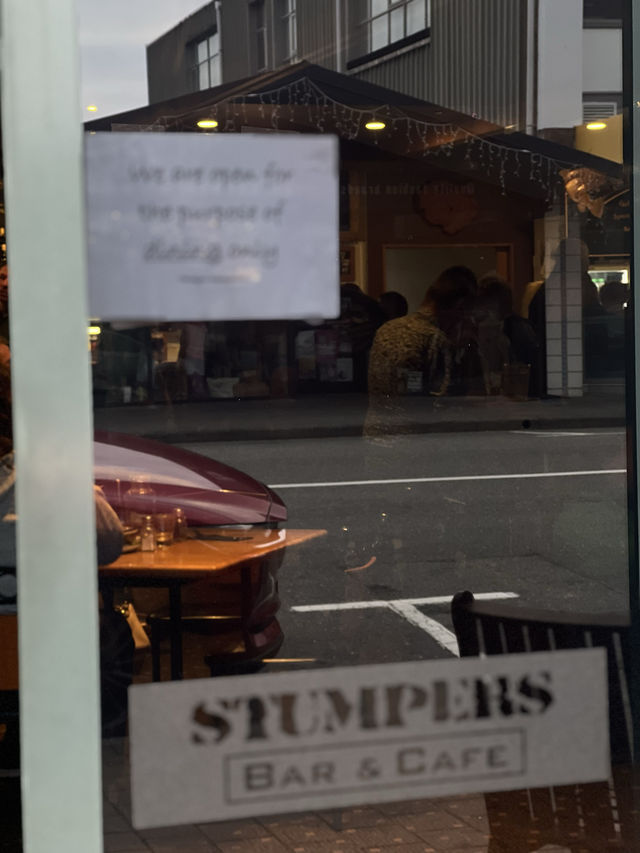 We are open for
the purpose of
dining only
STUMPERS
BAR & CAFE